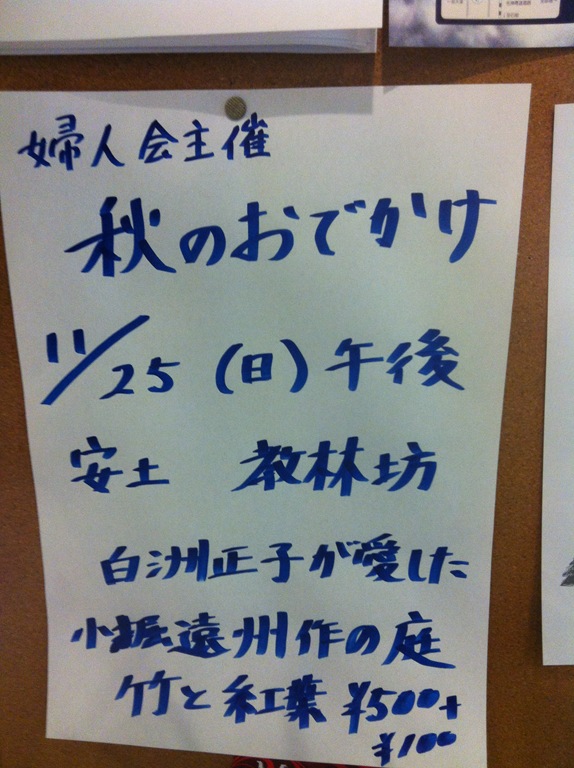 婦人会主催
秋のおでかけ
11/25 (日) 午後
安土 教林坊
白洲正子が愛した
小堀遠州作の庭
竹と紅葉 ¥500+
¥100